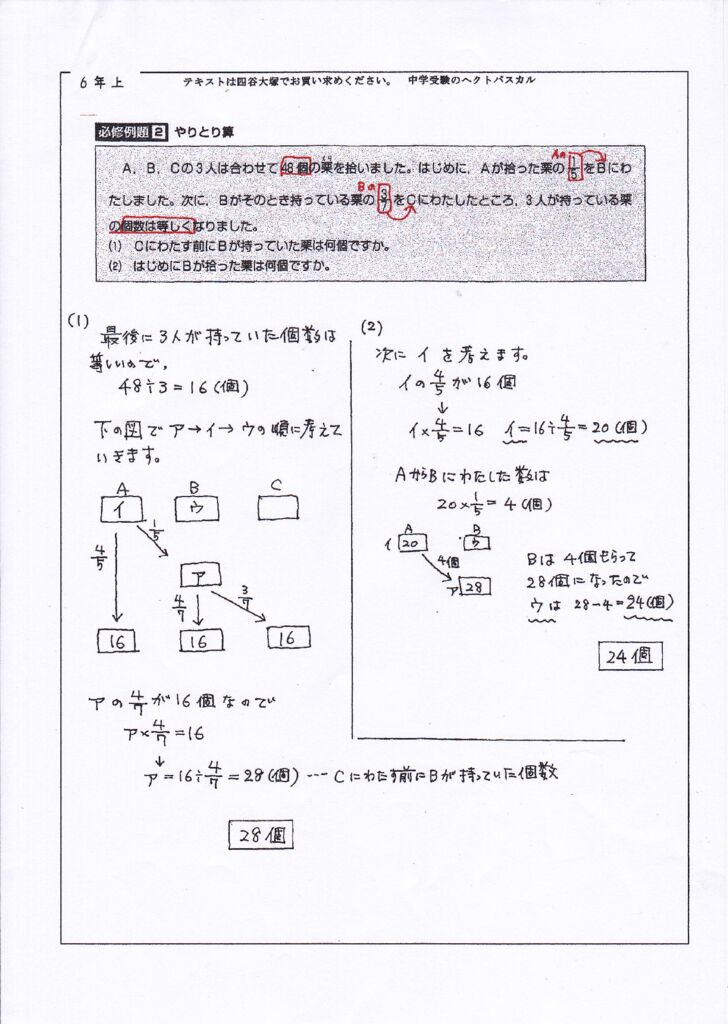 6年上
テキストは四谷大塚でお買い求めください。 中学受験のヘクトパスカル
必修例題 2 やりとり算
A，B，Cの3人は合わせて48個の栗を拾いました。はじめに，Aが拾った栗の1/5をBにわ
Aの
たしました。次に，Bがそのとき持っている栗の3/7をCにわたしたところ，3人が持っている栗
Bの
の個数は等しくなりました。
(1) Cにわたす前にBが持っていた栗は何個ですか。
(2) はじめにBが拾った栗は何個ですか。
(1)
最後に3人が持っていた個数は
等しいので，
48÷3=16(個)
下の図でア→イ→ウの順に考えて
いきます。
A B C
イ ウ
1/5
4/5
ア
4/7 3/7
16 16 16
アの4/7が16個なので
ア×4/7=16
↓
ア=16÷4/7=28(個)…Cにわたす前にBが持っていた個数
28個
(2)
次にイを考えます。
イの4/5が16個
↓
イ×4/5=16 イ=16÷4/5=20(個)
AからBにわたした数は
20×1/5=4(個)
A B
イ 20 ウ
4個
ア 28
Bは4個もらって
28個になったので
ウは 28-4=24(個)
24個